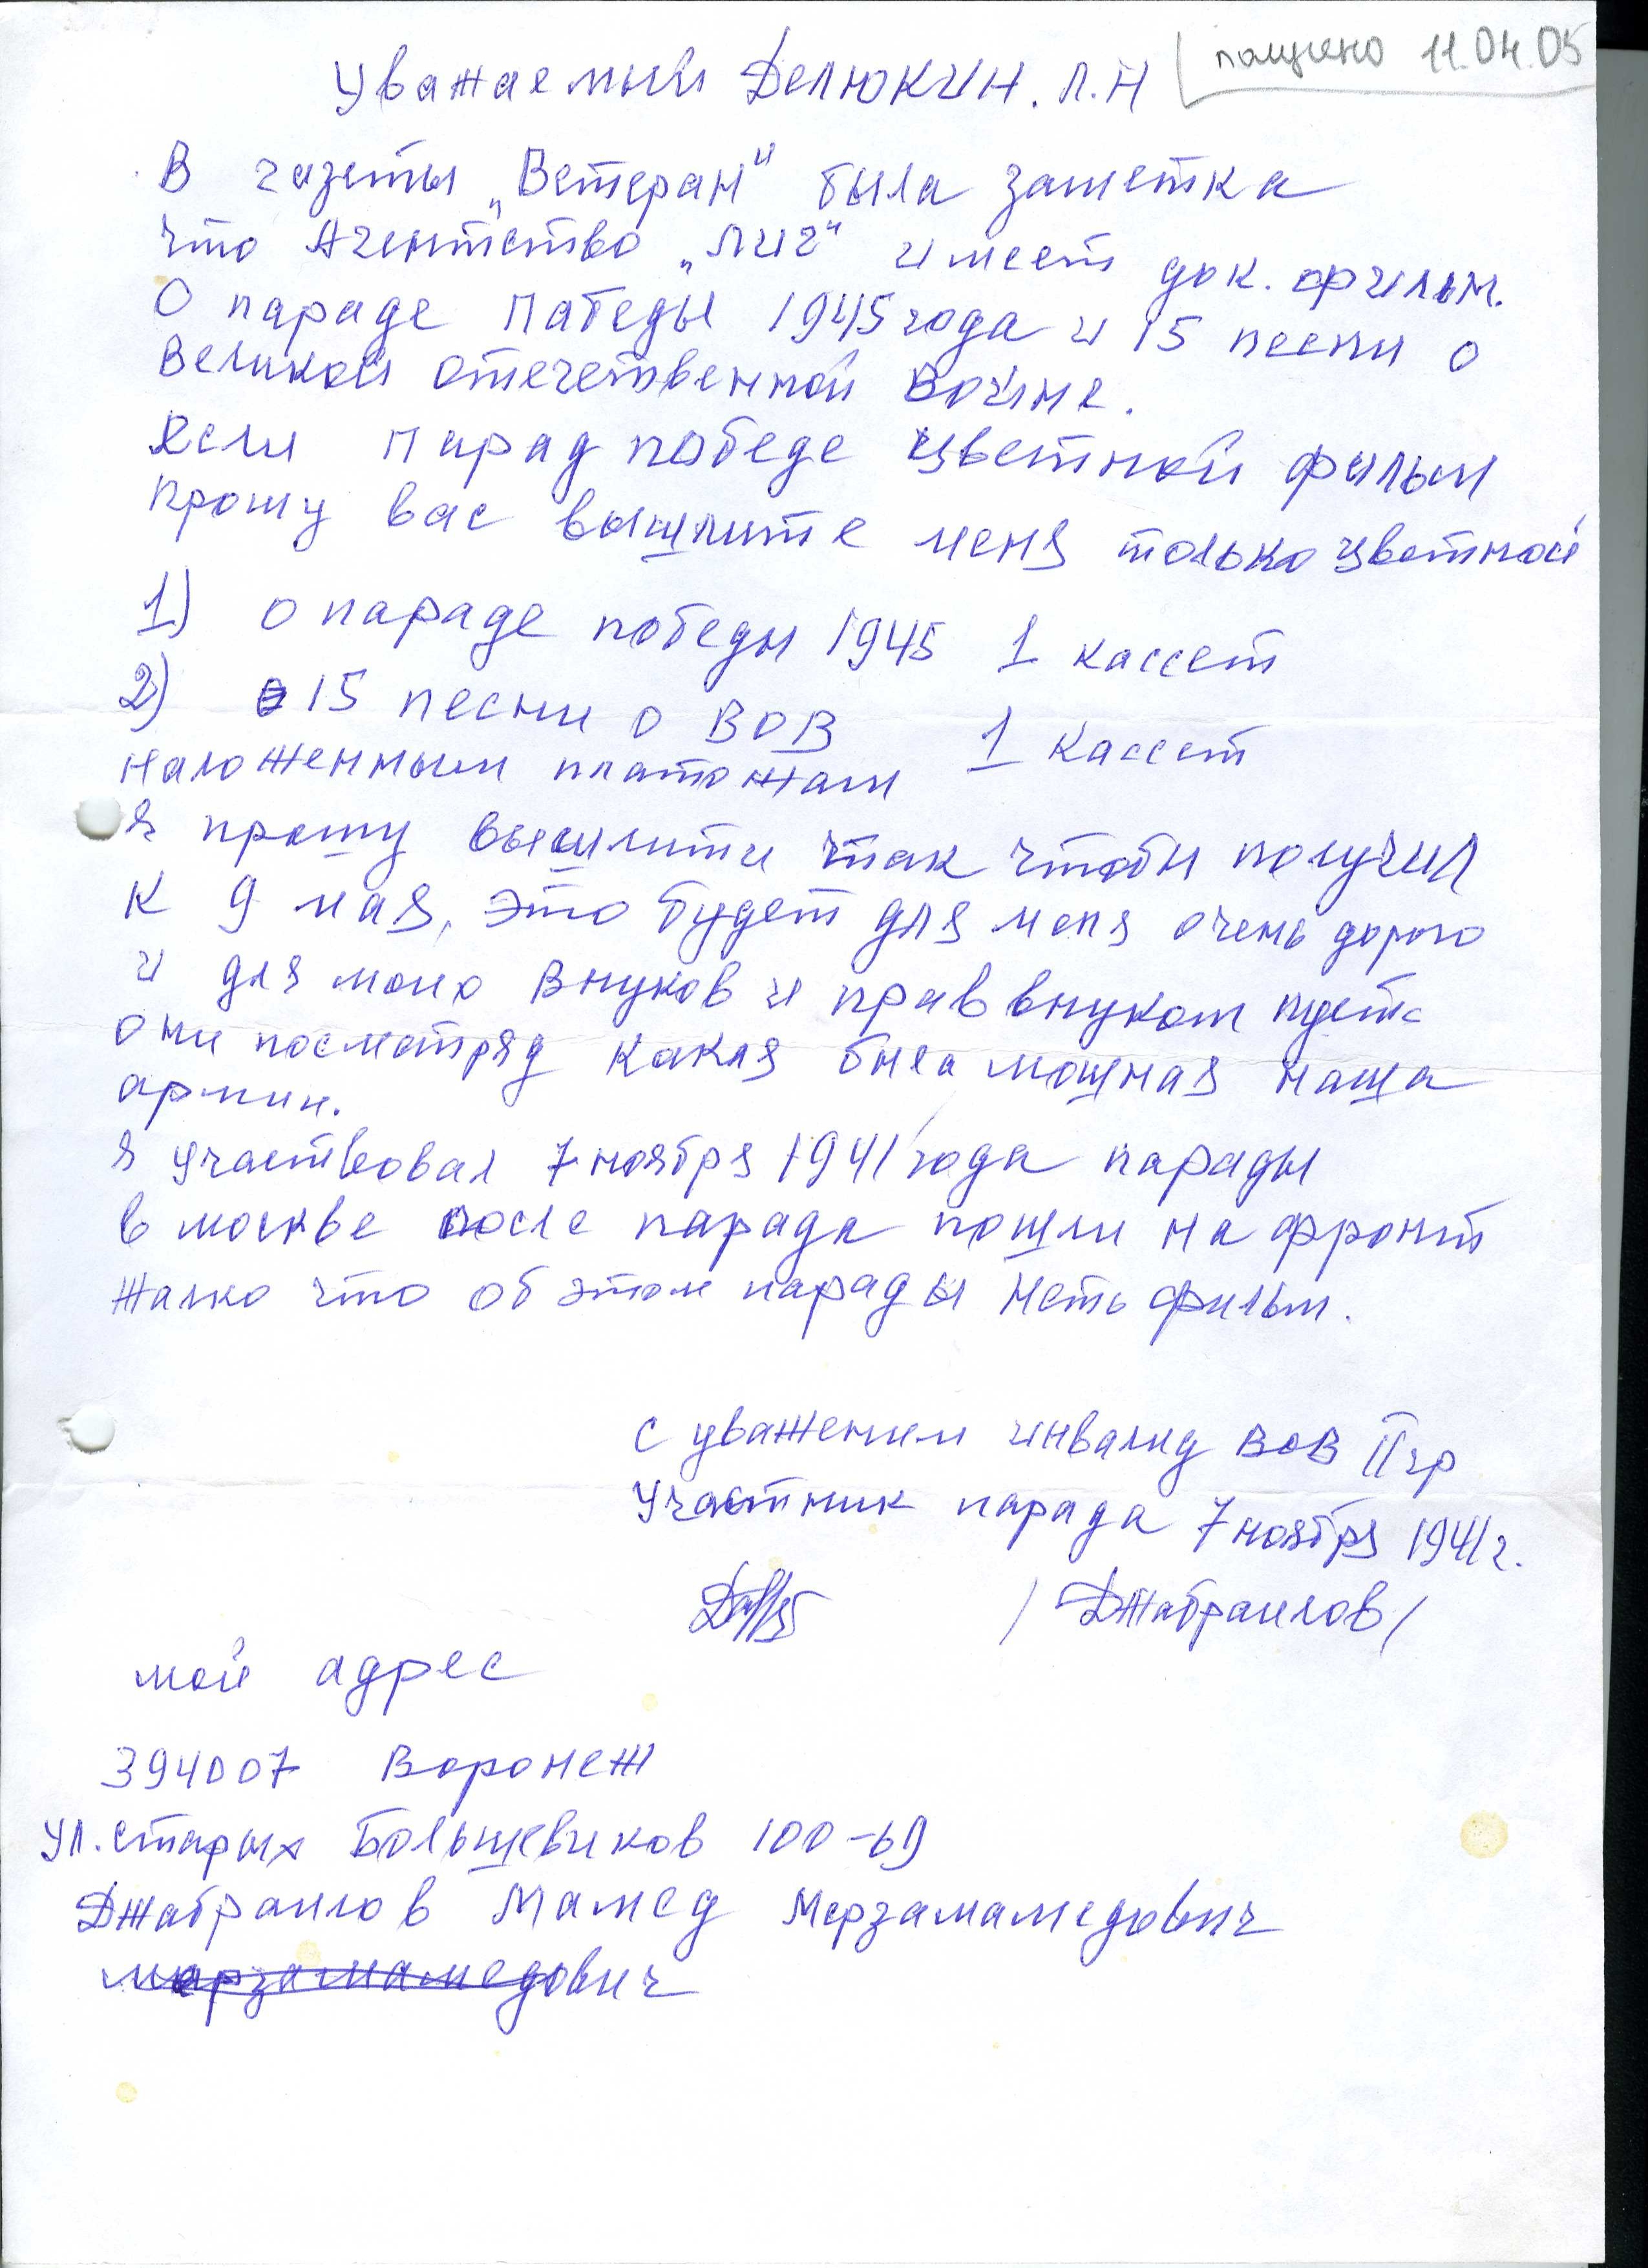 Уважаемый Делюкин. Л.Н
получено 11.04.05
В газеты „Ветеран" была заметка
что Агентство „Лиг" имеет док. фильм.
О параде Пабеды 1945 года и 15 песни о
Великой отечетвенной Войне.
Если парад победе цветной фильм
Прошу вас вышлите меня только цветной
1) о параде победы 1945 1 кассет
2) 15 песни о ВОВ 1 кассет
наложенным платожам
я прошу вышлити так чтобы получил
к 9 мая, это будет для меня очень дорого
и для моих внуков и праввнуком пусть
они посмотряд какая была мощная наша
армии.
я участвовал 7 ноября 1941 года парады
в москве после парада пошли на фронт
Жалко что об этом парады Неть фильм.
С уважением инвалид ВОВ II гр
участник парада 7 ноября 1941 г.
/Джабраилов/
мой адрес
394007 Воронеж
ул. Старых Большевиков 100-69
Джабраилов Мамед Мерзамамедович
мерзамамедович